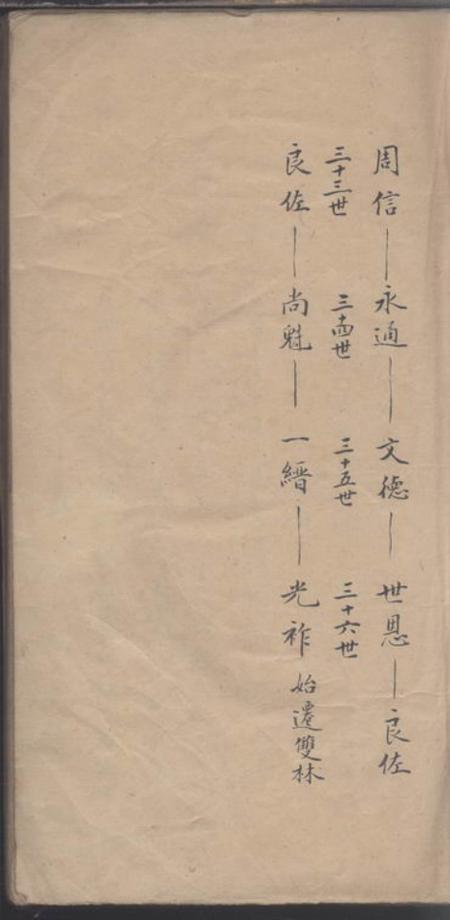 周信—永通—文德—世恩—良佐
三十三世 三十四世 三十五世 三十六世
良佐—尚魁—一縉—光祚 始遷雙林